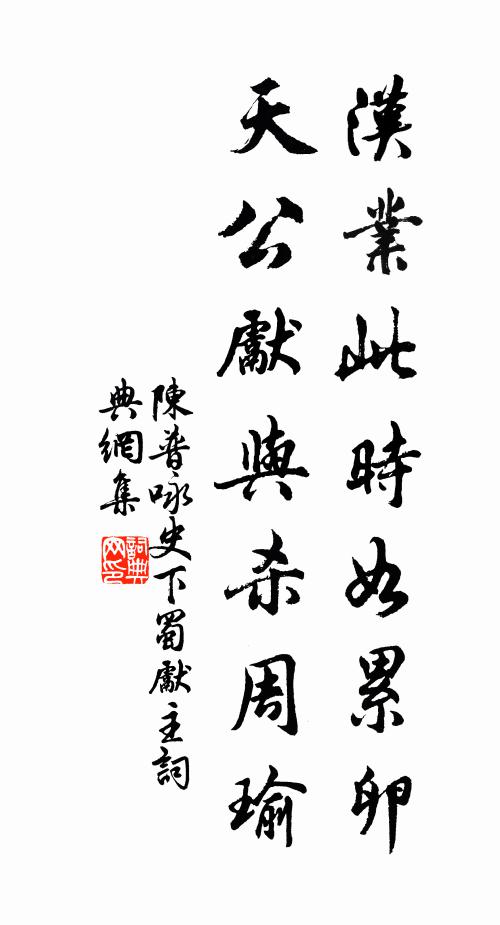 漢業此時如累卵
天公獻與杀周瑜
陳普咏史下蜀獻主詞
典網集
詞典網印